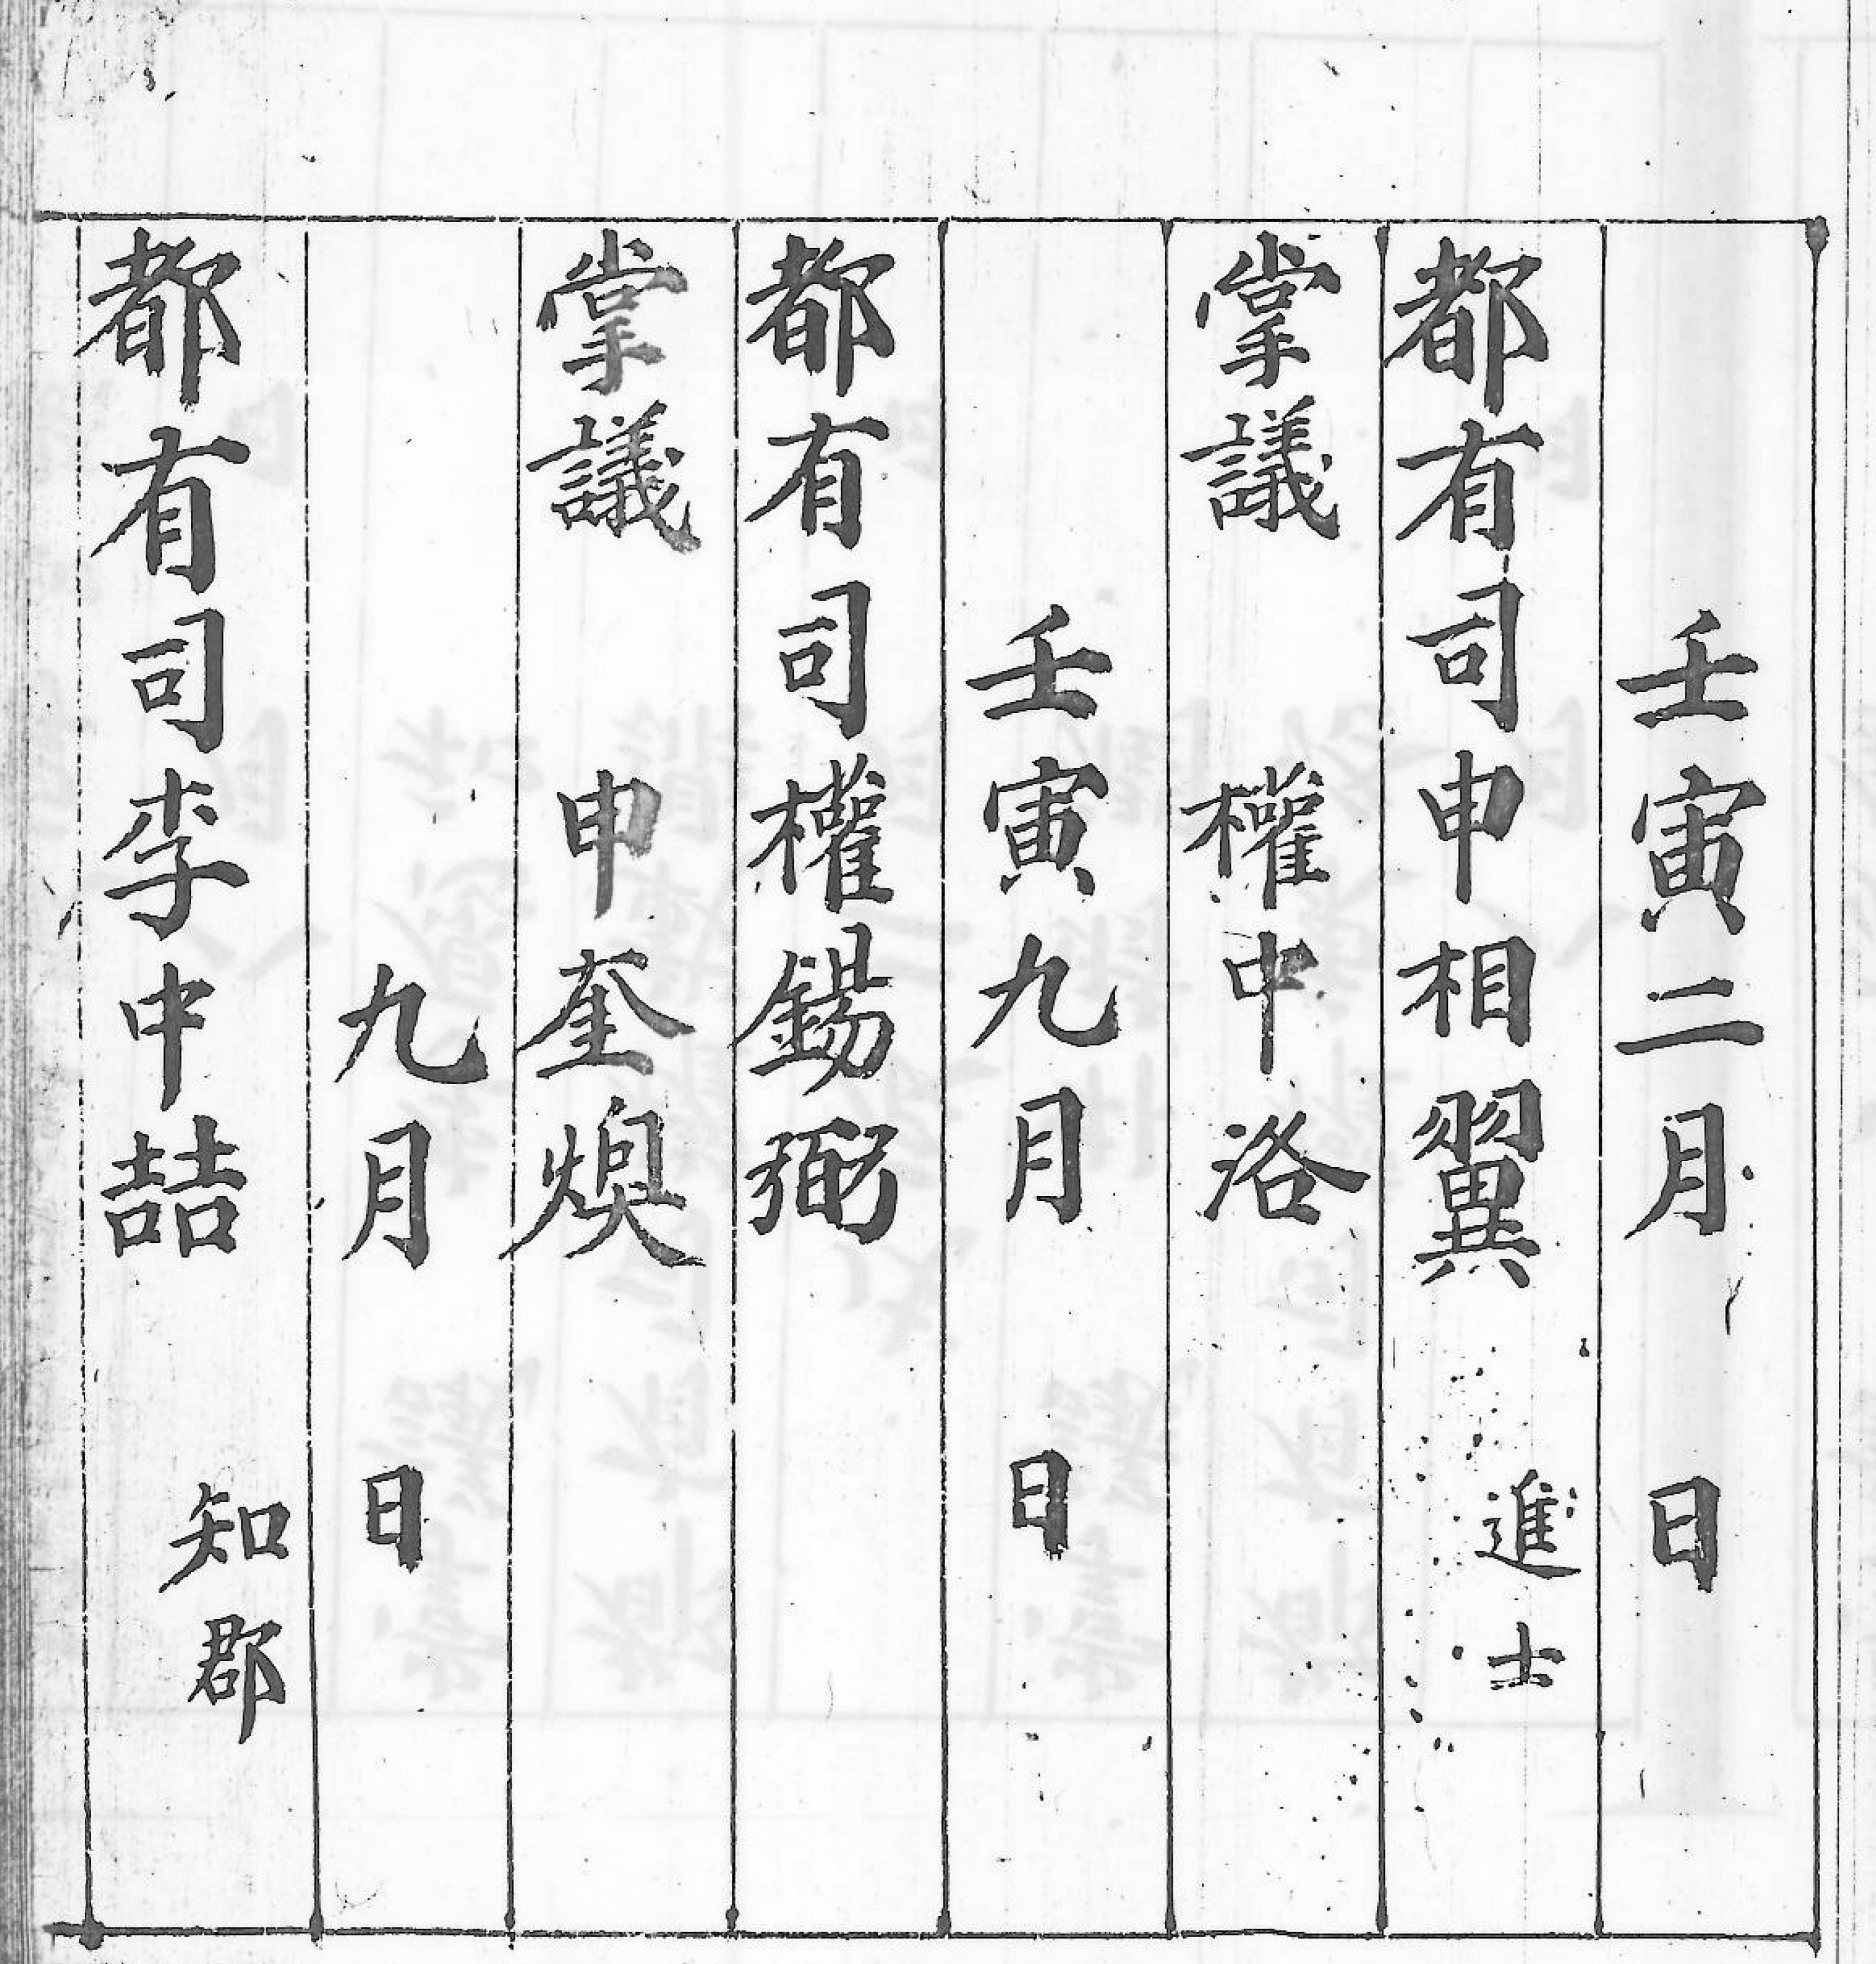 壬寅二月 日
都有司申相翼 進士
掌議 權中洛
壬寅九月 日
都有司權錫弼
掌議 申奎煥
九月 日
都有司李中喆 知郡